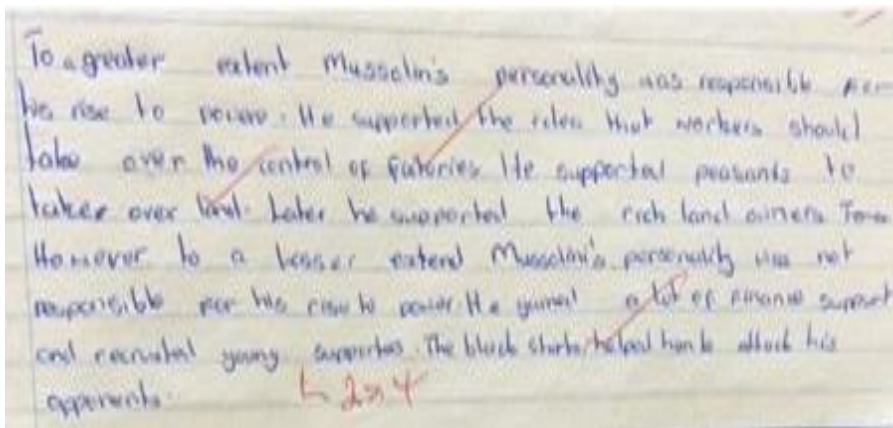 To a greater extent Mussolin's personality was responsible for
his rise to power. He supported the idea that workers should
take over the control of fatories He supported peasants to
takes over land. Later he supported the rich land owners
However to a lesser extend Mussolini's personality was not
responsible for his rise to power. He gained a lot of finance support
and recruited young supporters. The black shirts helped him to attack his
opponents.
L2 4